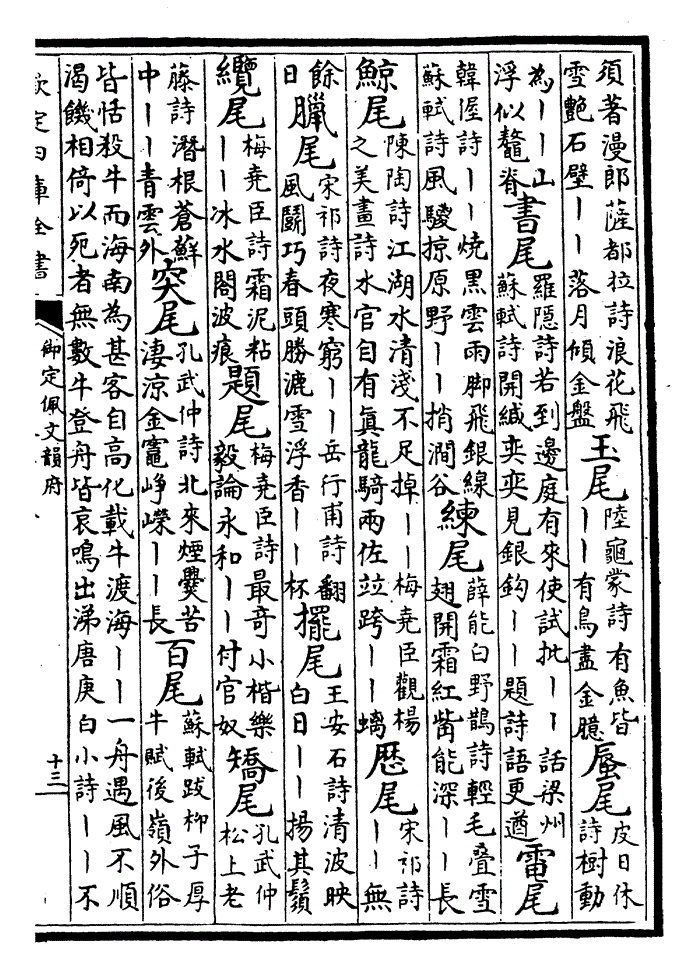 須著漫郎薩都拉詩浪花飛
雪艷石壁丨丨落月傾金盤
玉尾
陸龜蒙詩有魚皆
丨丨有鳥盡金臆
蜃尾
皮日休
詩樹動
為丨丨山
浮似鼇脊
書尾
羅隱詩若到邊庭有來使試批丨丨話梁州
蘇軾詩開緘奕奕見銀鈎丨丨題詩語更遒
電尾
韓偓詩丨丨燒黑雲雨脚飛銀線
蘇軾詩風驟掠原野丨丨捎澗谷
練尾
薛能白野鵲詩輕毛疊雪
翅開霜紅觜能深丨丨長
鯨尾
陳陶詩江湖水清淺不足掉丨丨梅堯臣觀楊
之美畫詩水官自有眞龍騎兩佐竝跨丨丨螭
歴尾
宋祁詩
丨丨無
餘
日
臘尾
宋祁詩夜寒窮丨丨岳行甫詩翻
風鬭巧春頭勝漉雪浮香丨丨杯
擺尾
王安石詩清波映
白日丨丨揚其鬚
纜尾
梅堯臣詩霜泥粘
丨丨冰水閣波痕
題尾
梅堯臣詩最奇小楷樂
毅論永和丨丨付官奴
矯尾
孔武仲
松上老
藤詩潛根蒼蘚
中丨丨青雲外
突尾
孔武仲詩北來煙爨苦
淒涼金竈崢嶸丨丨長
百尾
蘇軾跋柳子厚
牛賦後嶺外俗
皆恬殺牛而海南為甚客自高化載牛渡海丨丨一舟遇風不順
渴饑相倚以死者無數牛登舟皆哀鳴出涕唐庚白小詩丨丨不
欽定四庫全書
御定佩文韻府
十三